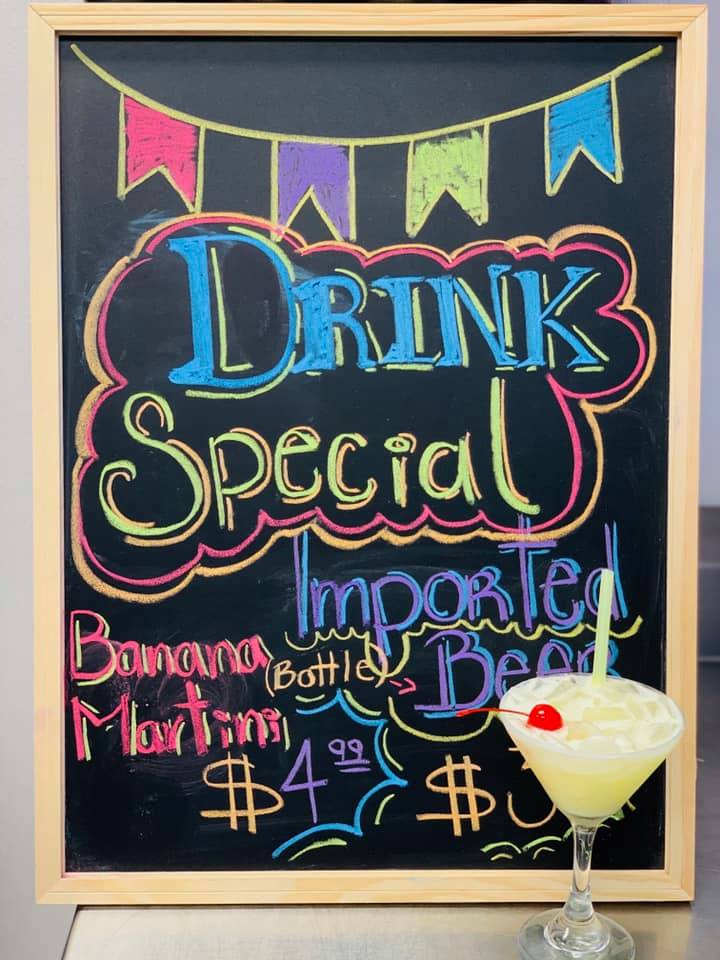 DRINK
Special
Imported
Banana (Bottle) Beer
Martini
$4.99 $